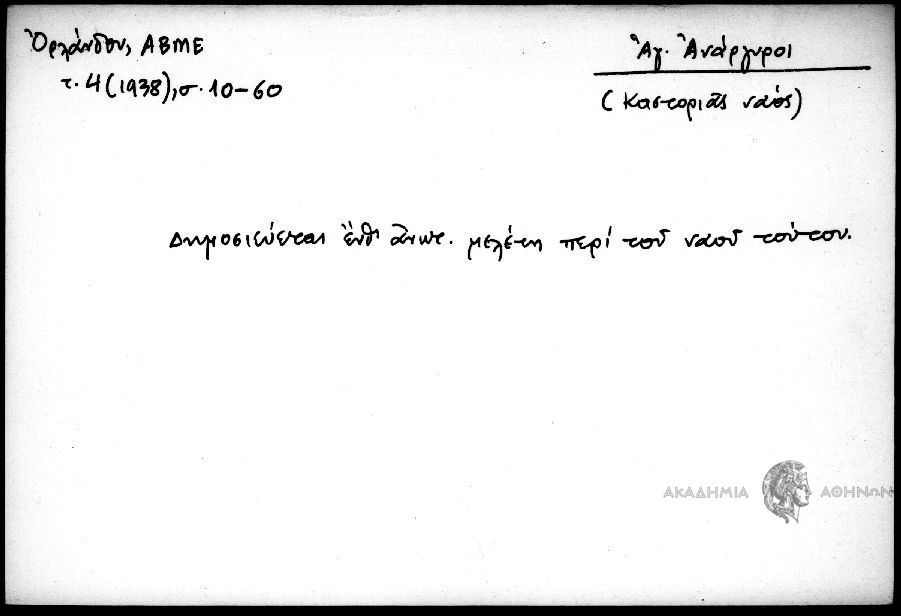 Ὀρλάνδου, ΑΒΜΕ
τ. 4 (1938), σ. 10-60
Ἅγ. Ἀνάργυροι
(Καστοριᾶς ναός)
Δημοσιεύεται ἔνθ' ἄνωτ. μελέτη περί τοῦ ναοῦ τούτου.
ΑΚΑΔΗΜΙΑ ΑΘΗΝΩΝ